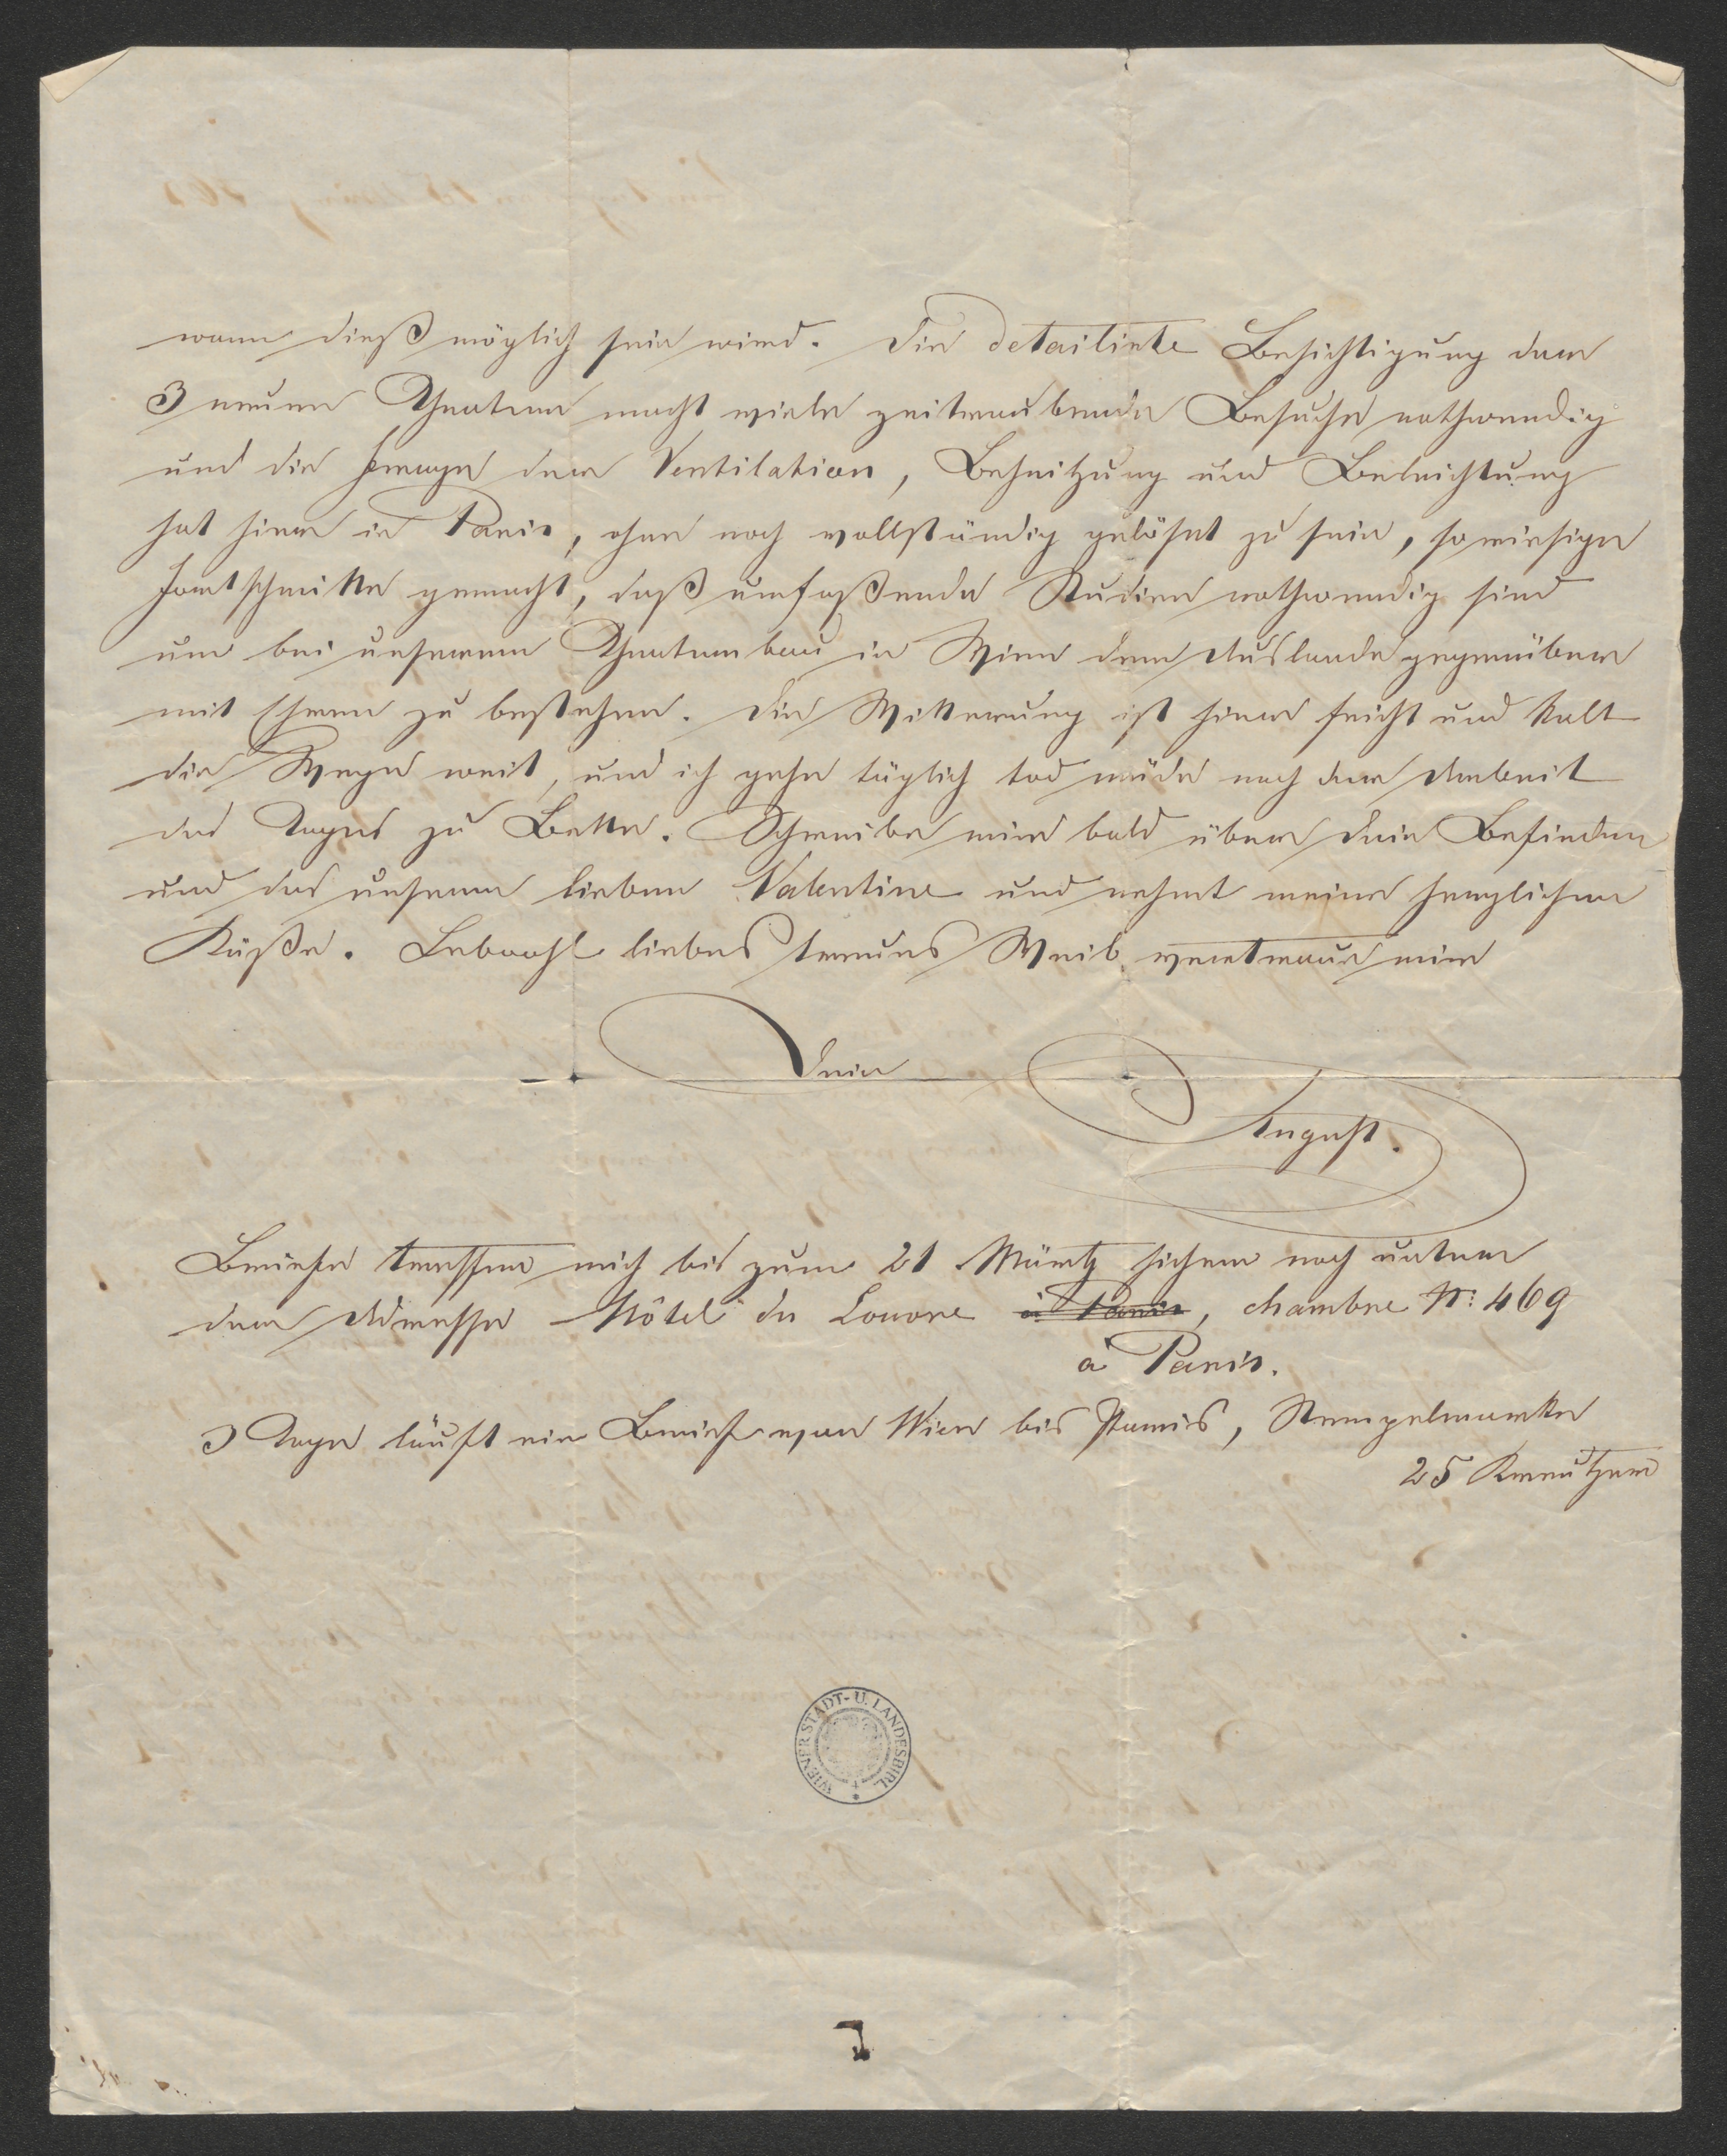 wann dieß möglich sein wird. Die detailirte Besichtigung der
3 neuen Theater macht viele zeitraubende Besuche nothwendig
und die Frage der Ventilation, Beheitzung und Beleichtung
hat hier in Paris, ohne noch vollständig gelöset zu sein, so riesige
Fortschritte gemacht, daß umfaßende Studien nothwendig sind
um bei unserem Theaterbau in Wien dem Auslande gegenüber
mit Ehren zu bestehen. Die Witterung ist hier feicht und kalt
die Wege weit, und ich gehe täglich tod müde nach der Arbeit
des Tages zu Bette. Schreibe mir bald über Dein Befinden
und das unserer lieben Valentine und nehmt meine herzlichen
Küße. Lebwohl liebes treues Weib vertraue mir
Dein
August.
Briefe treffen mich bis zum 21 März sicher noch unter
der Adresse Hôtel du Louvre à Paris, chambre No: 469
à Paris.
3 Tage läuft ein Brief von Wien bis Paris, Stempelmarke
25 Kreutzer
WIENER STADT- U. LANDESBIBL.